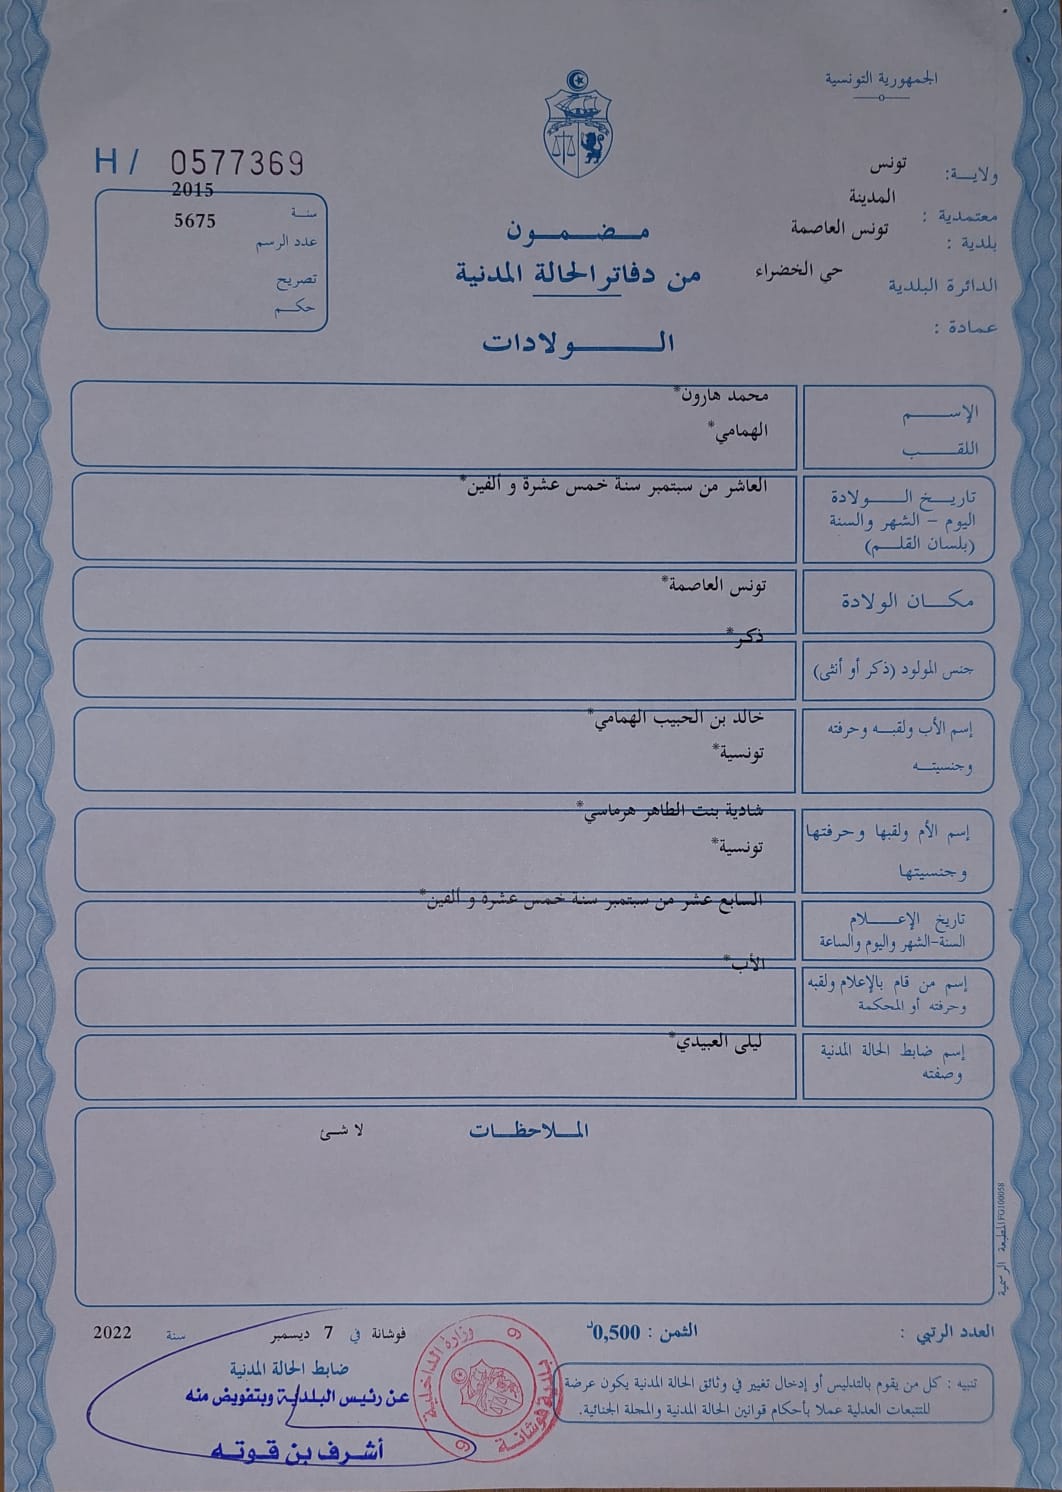 الجمهورية التونسية
H/ 0577369
ولايـــة: تونس
معتمدية : المدينة
بلدية : تونس العاصمة
الدائرة البلدية حي الخضراء
عمادة :
سنـــة 2015
عدد الرسم 5675
تصريح
حكـــم
مـــضـــمـــون
من دفاتر الحالة المدنية
الـــــــولادات
الإســـــم محمد هارون*
اللقـــــب الهمامي*
تاريـــخ الـــــولادة العاشر من سبتمبر سنة خمس عشرة و ألفين*
اليوم - الشهر والسنة
(بلسان القلـــم)
مكـــان الولادة تونس العاصمة*
جنس المولود (ذكر أو أنثى) ذكر*
إسم الأب ولقبـــه وحرفته خالد بن الحبيب الهمامي*
وجنسيتـــه تونسية*
إسم الأم ولقبها وحرفتها شادية بنت الطاهر هرماسي*
وجنسيتها تونسية*
تاريخ الإعـــــلام السابع عشر من سبتمبر سنة خمس عشرة و ألفين*
السنة-الشهر واليوم والساعة
إسم من قام بالإعلام ولقبه الأب*
وحرفته أو المحكمة
إسم ضابط الحالة المدنية ليلى العبيدي*
وصفته
المـــلاحظـــات لا شئ
المطبعة الرسمية FG100058
العدد الرتبي :
الثمن : 0,500د
فوشانة في 7 ديسمبر سنة 2022
ضابط الحالة المدنية
عن رئيس البلدية وبتفويض منه
أشرف بن قوته
وزارة الداخلية
فوشانة
تنبيه : كل من يقوم بالتدليس أو إدخال تغيير في وثائق الحالة المدنية يكون عرضة
للتتبعات العدلية عملا بأحكام قوانين الحالة المدنية والمجلة الجنائية.